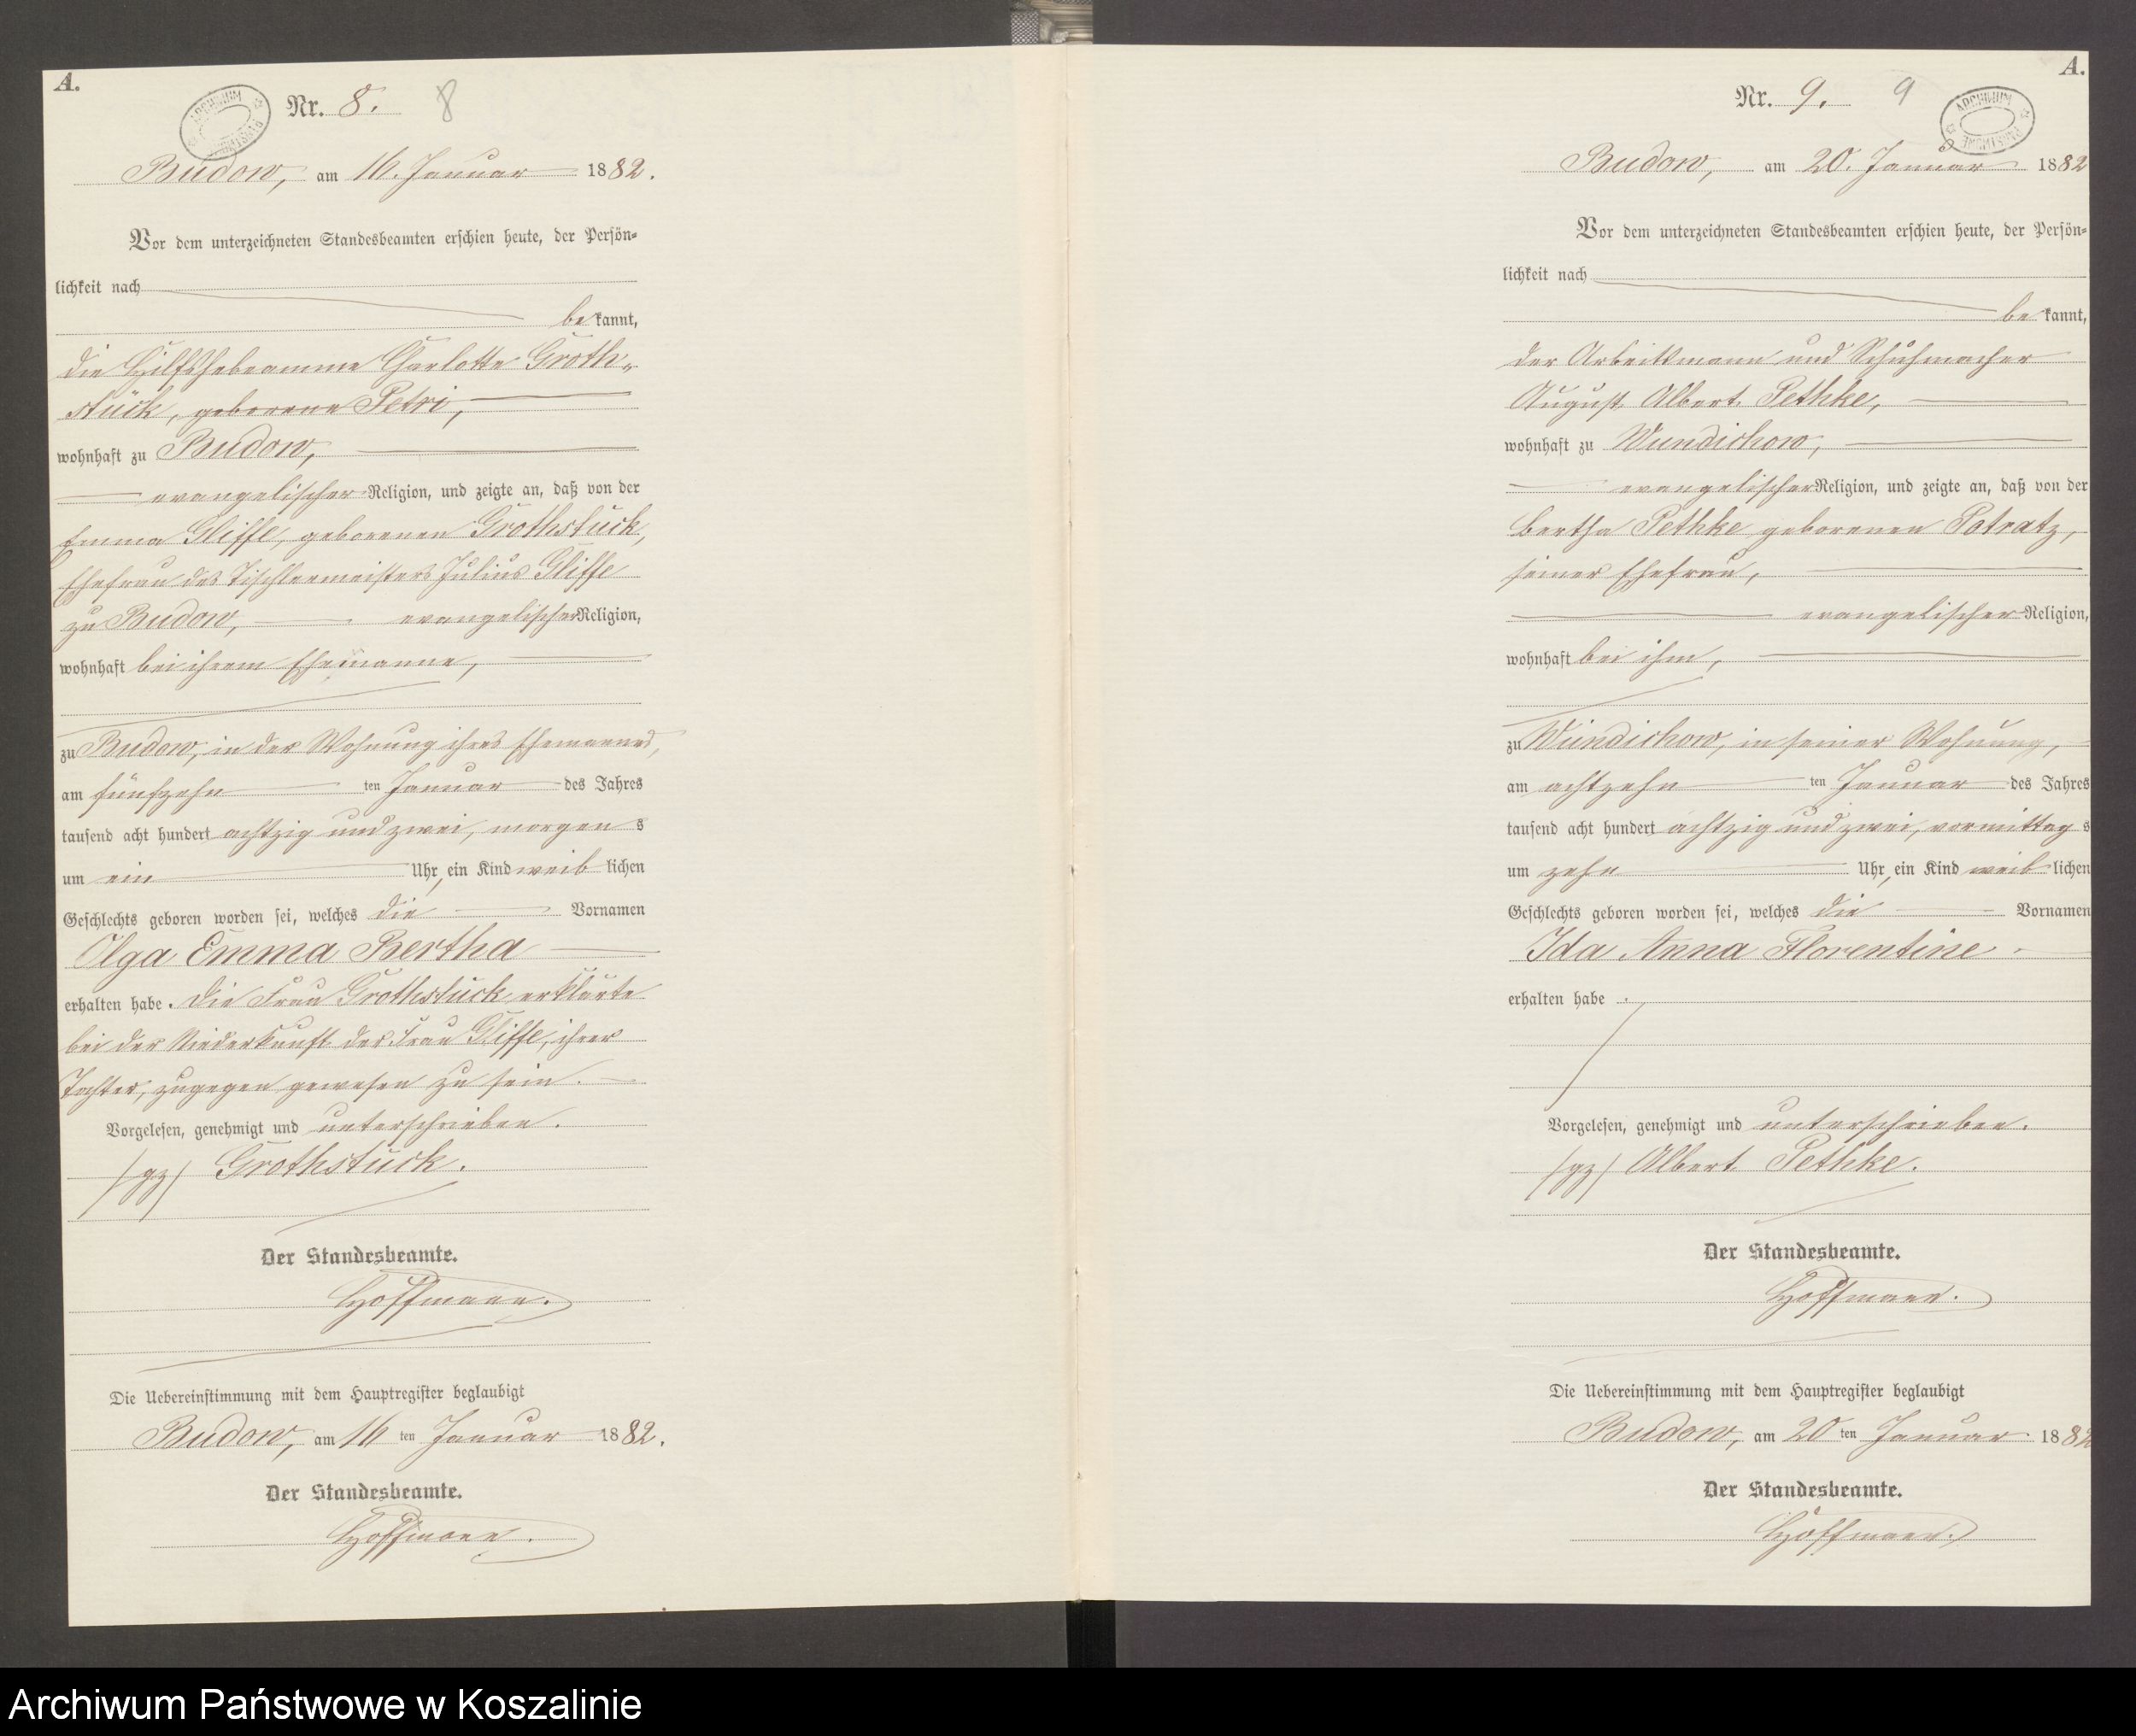 A.
ARCHIWUM PAŃSTWOWE
Nr. 8. 8
Budow, am 16. Januar 1882.
Vor dem unterzeichneten Standesbeamten erschien heute, der Persön-
lichkeit nach
be kannt,
die Hilfshebeamme Charlotte Groth-
stück, geborene Petri,
wohnhaft zu Budow,
evangelischer Religion, und zeigte an, daß von der
Emma Gliffe, geborenen Grothstück,
Ehefrau des Tischlermeisters Julius Gliffe
zu Budow, evangelischer Religion,
wohnhaft bei ihrem Ehemanne,
zu Budow, in der Wohnung ihres Ehemannes,
am fünfzehn ten Januar des Jahres
tausend acht hundert achtzig und zwei, morgen s
um ein Uhr, ein Kind weib lichen
Geschlechts geboren worden sei, welches die Vornamen
Olga Emma Bertha
erhalten habe. Die Frau Grothstück erklärte
bei der Niederkunft der Frau Gliffe, ihrer
Tochter, zugegen gewesen zu sein.
Vorgelesen, genehmigt und unterschrieben.
/gz/ Grothstück.
Der Standesbeamte.
Hoffmann.
Die Uebereinstimmung mit dem Hauptregister beglaubigt
Budow, am 16 ten Januar 1882.
Der Standesbeamte.
Hoffmann.
A.
Nr. 9. 9
ARCHIWUM PAŃSTWOWE
Budow, am 20. Januar 1882
Vor dem unterzeichneten Standesbeamten erschien heute, der Persön-
lichkeit nach
be kannt,
der Arbeitsmann und Schuhmacher
August Albert Pethke,
wohnhaft zu Wundichow,
evangelischer Religion, und zeigte an, daß von der
Bertha Pethke geborenen Potratz,
seiner Ehefrau,
evangelischer Religion,
wohnhaft bei ihm,
zu Wundichow, in seiner Wohnung,
am achtzehn ten Januar des Jahres
tausend acht hundert achtzig und zwei, vormittag s
um zehn Uhr, ein Kind weib lichen
Geschlechts geboren worden sei, welches die Vornamen
Ida Anna Florentine
erhalten habe.
Vorgelesen, genehmigt und unterschrieben.
/gz/ Albert Pethke.
Der Standesbeamte.
Hoffmann.
Die Uebereinstimmung mit dem Hauptregister beglaubigt
Budow, am 20 ten Januar 1882
Der Standesbeamte.
Hoffmann.
Archiwum Państwowe w Koszalinie